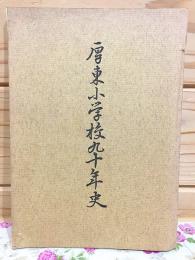 厚東小学校九十年史